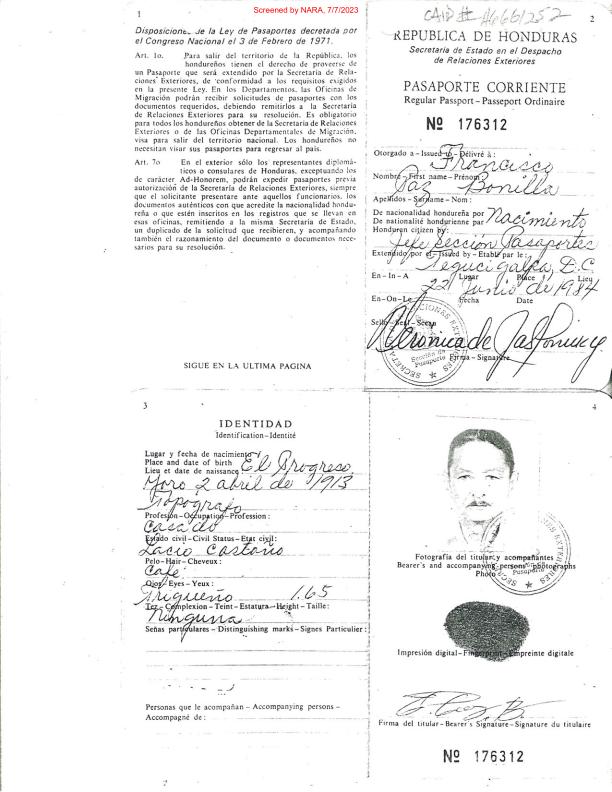 Screened by NARA, 7/7/2023
1
Disposiciones de la Ley de Pasaportes decretada por
el Congreso Nacional el 3 de Febrero de 1971.
Art. 1o. Para salir del territorio de la República, los
hondureños tienen el derecho de proveerse de
un Pasaporte que será extendido por la Secretaría de Rela-
ciones Exteriores, de conformidad a los requisitos exigidos
en la presente Ley. En los Departamentos, las Oficinas de
Migración podrán recibir solicitudes de pasaportes con los
documentos requeridos, debiendo remitirlos a la Secretaría
de Relaciones Exteriores para su resolución. Es obligatorio
para todos los hondureños obtener de la Secretaría de Relaciones
Exteriores o de las Oficinas Departamentales de Migración,
visa para salir del territorio nacional. Los hondureños no
necesitan visar sus pasaportes para regresar al país.
Art. 7o En el exterior sólo los representantes diplomá-
ticos o consulares de Honduras, exceptuando los
de carácter Ad-Honorem, podrán expedir pasaportes previa
autorización de la Secretaría de Relaciones Exteriores, siempre
que el solicitante presentare ante aquellos funcionarios, los
documentos auténticos con que acredite la nacionalidad hondu-
reña o que estén inscritos en los registros que se llevan en
esas oficinas, remitiendo a la misma Secretaría de Estado,
un duplicado de la solicitud que recibieren, y acompañando
también el razonamiento del documento o documentos nece-
sarios para su resolución.
SIGUE EN LA ULTIMA PAGINA
2
REPUBLICA DE HONDURAS
Secretaría de Estado en el Despacho
de Relaciones Exteriores
PASAPORTE CORRIENTE
Regular Passport - Passeport Ordinaire
Nº 176312
Otorgado a - Issued to - Délivré à :
Francisco
Nombre - First name - Prénom
Paz Bonilla
Apellidos - Surname - Nom :
De nacionalidad hondureña por Nacimiento
De nationalité hondurienne par
Honduren citizen by:
Jefe Sección Pasaportes
Extendido por el - Issued by - Etabli par le :
Tegucigalpa, D.C.
En - In - A Lugar Place Lieu
22 Junio de 1984
En - On - Le Fecha Date
Sello - Seal - Sceau
Firma - Signature
3
IDENTIDAD
Identification - Identité
Lugar y fecha de nacimiento
Place and date of birth
Lieu et date de naissance El Progreso
Yoro 2 abril de 1913
Topógrafo
Profesión - Occupation - Profession :
Casado
Estado civil - Civil Status - Etat civil :
Lacio Castaño
Pelo - Hair - Cheveux :
Café
Ojos - Eyes - Yeux :
Trigueño 1.65
Tez - Complexion - Teint - Estatura - Height - Taille :
Ninguna
Señas particulares - Distinguishing marks - Signes Particulier :
Personas que le acompañan - Accompanying persons -
Accompagné de :
4
Fotografía del titular y acompañantes
Bearer's and accompanying persons' photographs
Photo
Impresión digital - Fingerprint - Empreinte digitale
Firma del titular - Bearer's Signature - Signature du titulaire
Nº 176312